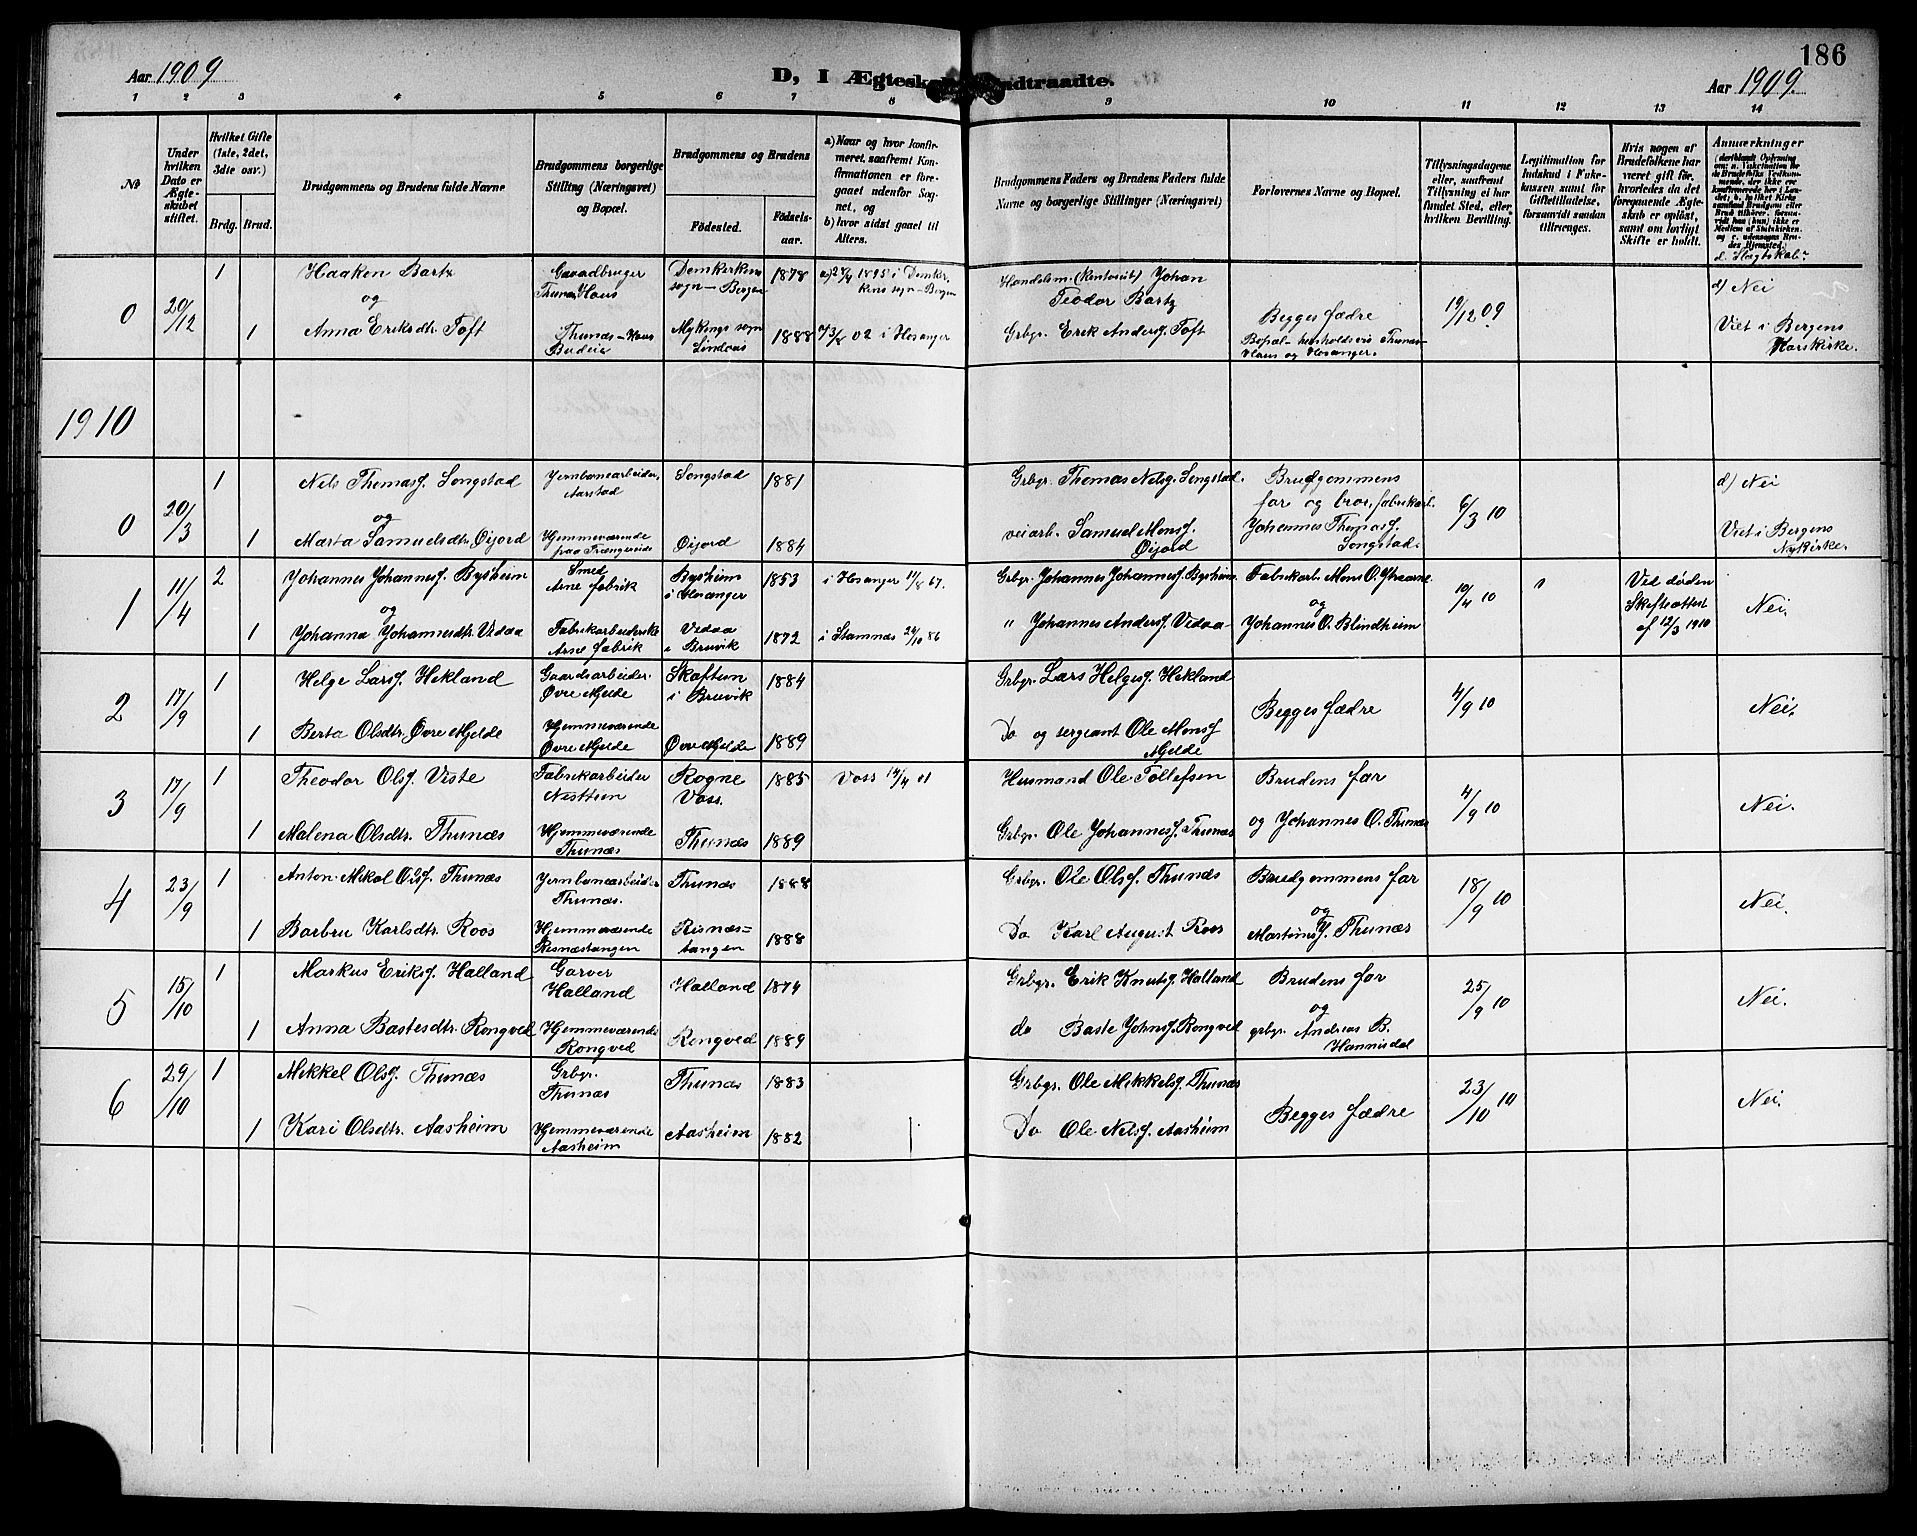 186
Aar 1909
D, I Ægtesk ndtraadte.
Aar 1909.
1 2 3 4 5 6 7 8 9 10 11 12 13 14
№
Under hvilken Dato er Ægteskabet stiftet.
Hvilket Gifte (1ste, 2det, 3dte osv.)
Brdg. Brud.
Brudgommens og Brudens fulde Navne
Brudgommens borgerlige Stilling (Næringsvei) og Bopæl.
Brudgommens og Brudens
Fødested.
Fødselsaar.
a) Naar og hvor konfirmeret, saafremt Konfirmationen er foregaaet udenfor Sognet, og
b) hvor sidst gaaet til Alters.
Brudgommens Faders og Brudens Faders fulde Navne og borgerlige Stillinger (Næringsvei)
Forlovernes Navne og Bopæl.
Tillysningsdagene eller, saafremt Tillysning ei har fundet Sted, efter hvilken Bevilling.
Legitimation for Indskud i Enkekassen samt for Giftetilladelse, forsaavidt saadan tiltrænges.
Hvis nogen af Brudefolkene har været gift før, hvorledes da det foregaaende Ægteskab er opløst, samt om lovligt Skifte er holdt.
Anmærkninger
d. Slægtskab
0 20/12 1 Haaken Bartz Gaardbruger Thunes Haus Domkirkens sogn - Bergen 1878 a) 29/4 1895 i Domkirkens sogn - Bergen Handelsm. (Kontorist) Johan Teodor Bartz Begges fædre 19/12 09 d) Nei
og
1 Anna Eriksdtr. Toft Thunæs - Haus Budeie Mykings sogn Lindaas 1888 02 i Hosanger Grbgr. Erik Anders. Toft Bopæl - henholdsvis Thunæs - Haus og Hosanger. Viet i Bergens Korskirke.
1910
0 20/3 1 Nels Thomass. Songstad Jernbanearbeider Aarstad Songstad 1881 Grbgr. Thomas Nelss. Songstad. Brudgommens far og bror, fabrikarb. Johannes Thomass. Songstad. 6/3 10 d) Nei
og
1 Marta Samuelsdtr. Øijord Hjemmeværende paa Trengereid Øijord 1884 veiarb. Samuel Monss. Øijord Viet i Bergens Nykirke.
1 11/4 2 Johannes Johanness. Bysheim Smed Arne fabrik Bysheim i Hosanger 1853 i Hosanger 11/8 67. Grbgr. Johannes Johanness. Bysheim Fabrikarb. Mons O. Ytrearne 10/4 10 " Ved døden Skifteattest af 12/3 1910 Nei.
og
1 Johanna Johannesdtr. Vidaa Fabrikarbeiderske Arne fabrik Vidaa i Bruvik 1872 i Stamnæs 24/10 86 " Johannes Anderss. Vidaa og Johannes O. Blindheim
2 17/9 1 Helge Larss. Hekland Gaardsarbeider Øvre Mjelde Skaftun i Bruvik 1884 Grbgr. Lars Helgess. Hekland Begges fædre 4/9 10 Nei.
1 Berta Olsdtr. Øvre Mjelde Hjemmeværende Øvre Mjelde Øvre Mjelde 1889 Do og sergeant Ole Monss. Mjelde
3 17/9 1 Theodor Olss. Viste Fabrikarbeider Nesttun Rogne Voss. 1885 Voss 14/4 01 Husmand Ole Tollefsen Brudens far 4/9 10 Nei.
1 Malena Olsdtr. Thunæs Hjemmeværende Thunæs Thunæs 1889 Grbgr. Ole Johanness. Thunæs og Johannes O. Thunæs
4 23/9 1 Anton Mikal Olss. Thunæs Jernbanearbeider Thunæs. Thunæs 1888 Grbgr. Ole Olss. Thunæs Brudgommens far 18/9 10 Nei.
1 Barbru Karlsdtr. Roos Hjemmeværende Risnæstangen Risnæs-tangen 1888 Do Karl August Roos og Martinus J. Thunæs
5 15/10 1 Markus Erikss. Halland Garver Halland Halland 1874 Grbgr. Erik Knutss. Halland Brudens far 25/9 10 Nei.
1 Anna Bastesdtr. Rongved Hjemmeværende Rongved Rongved 1889 do Baste Johnss. Rongved og grbgr. Andreas B. Hannisdal
6 29/10 1 Mikkel Olss. Thunæs Grbgr. Thunæs Thunæs 1883 Grbgr. Ole Mikkelss. Thunæs Begges fædre 23/10 10 Nei.
1 Kari Olsdtr. Aasheim Hjemmeværende Aasheim Aasheim 1882 Do Ole Nelss. Aasheim